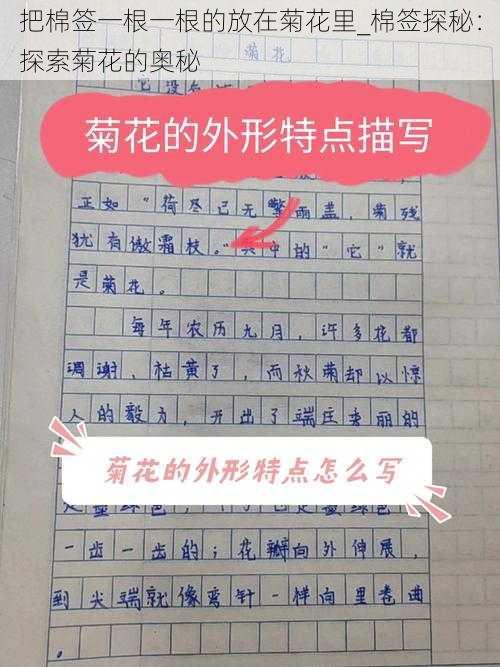 把棉签一根一根的放在菊花里_棉签探秘：
探索菊花的奥秘
菊花
它没有
菊花的外形特点描写
正如“荷尽已无擎雨盖，菊残
犹有傲霜枝。”其中的“它”就
是菊花。
每年农历九月，许多花都
凋谢、枯黄了，而秋菊却以惊
人的毅力，开出了端庄秀丽的
菊花的外形特点怎么写
是墨绿色
一齿一齿的；花瓣向外伸展，
到尖端就像弯针一样向里卷曲。